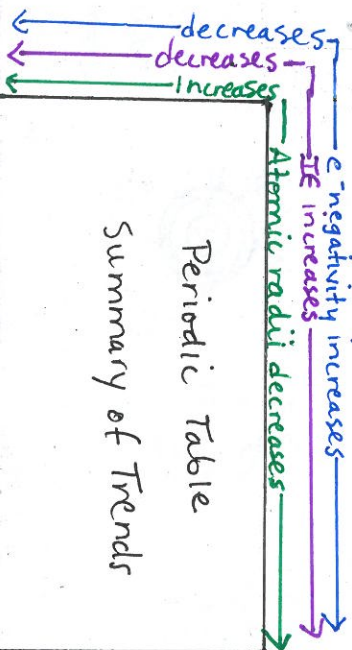 decreases
decreases
increases
e⁻negativity increases
IE increases
Atomic radii decreases
Periodic Table
Summary of Trends